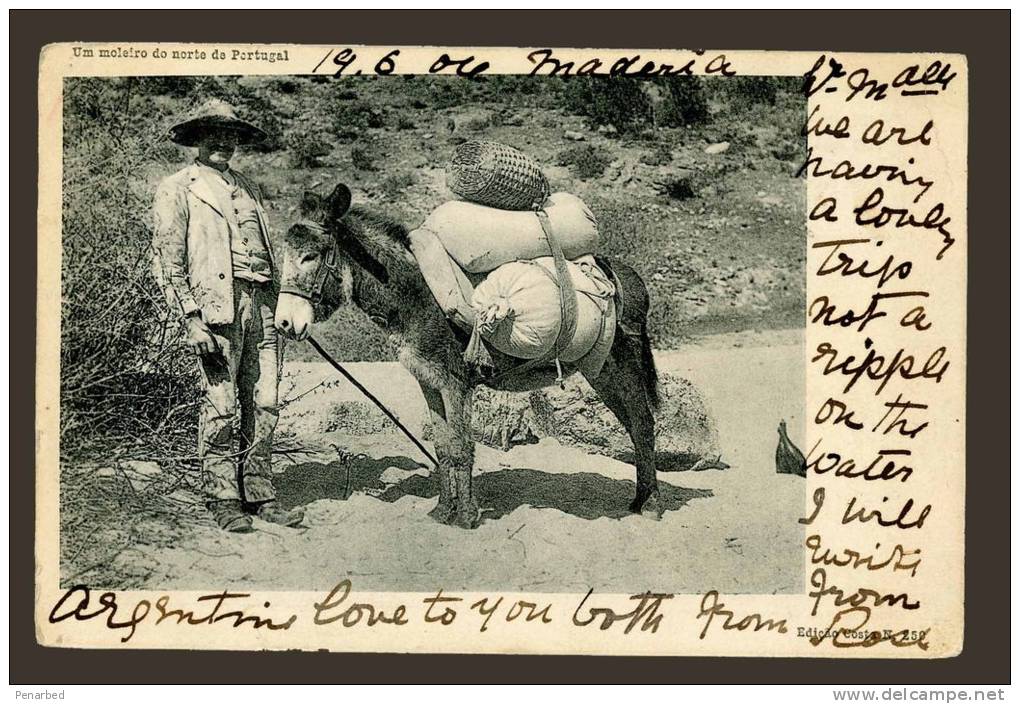 Um moleiro do norte de Portugal
19. 6. 04 Maderia
We are
having
a lovely
trip
not a
ripple
on the
water
I will
writi
From
Argentine Love to you both From Rose
Edição Costa N. 250
Penarbed
www.delcampe.net